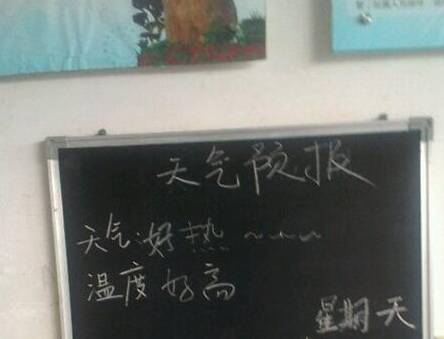 天气预报
天气好热~~~
温度好高
星期天